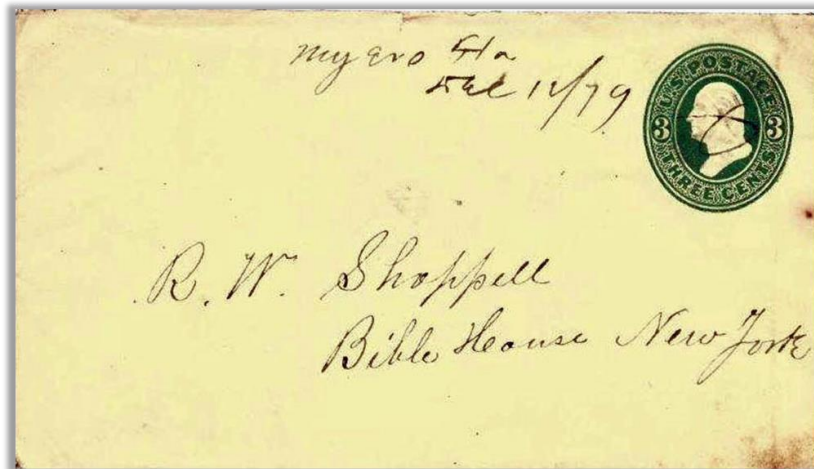 Myers Fla
Dec 12/79
U.S. POSTAGE
3 3
THREE CENTS
R. W. Shoppell
Bible House New York